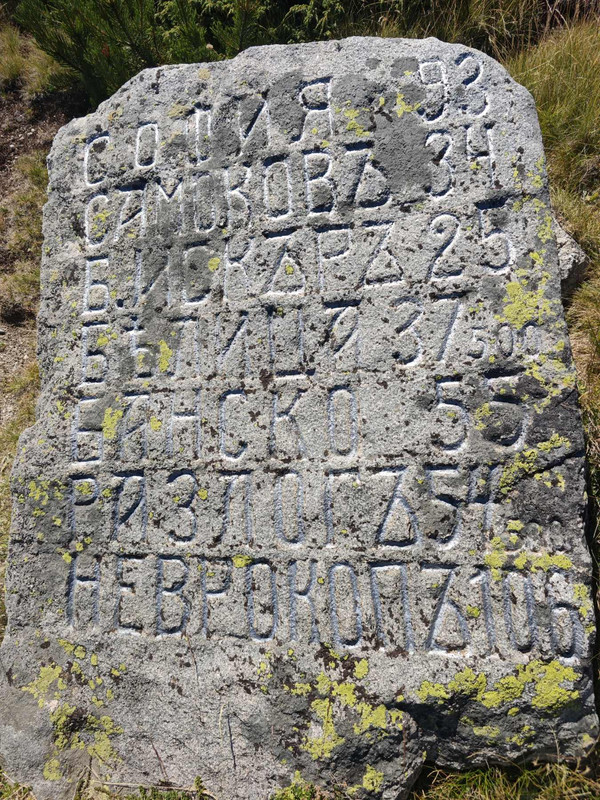 СОФИЯ 93
САМОКОВЪ 34
БЛИСКАРА 25
БѢЛИЦА 37500
БАНСКО 55
РАЗЛОГЪ 54
НЕВРОКОПЪ 106